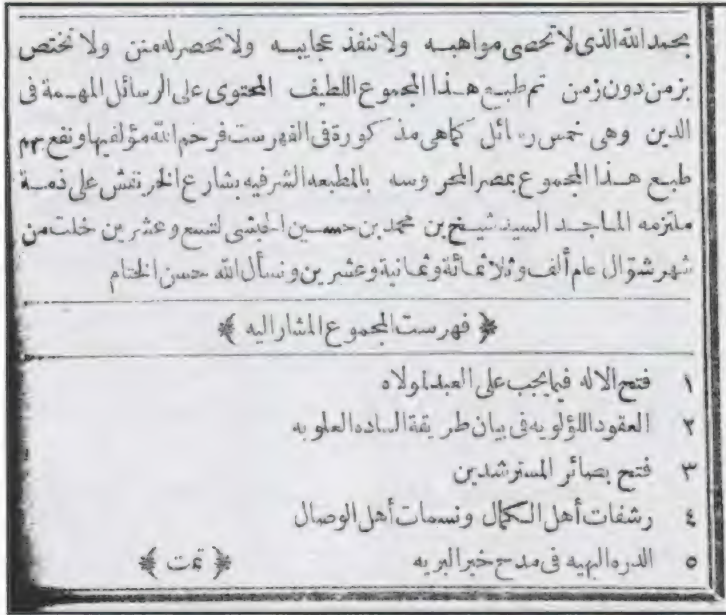 بحمد الله الذى لا تحصى مواهبه ولا تنفذ عجايبه ولا تحصر له منن ولا تختص
بزمن دون زمن تم طبع هذا المجموع اللطيف المحتوى على الرسائل المهمة فى
الدين وهى خمس رسائل كماهى مذكورة فى الفهرست فرحم الله مؤلفيها ونفع بهم
طبع هذا المجموع بمصر المحروسه بالمطبعه الشرفيه بشارع الخرنفش على ذمة
ملتزمه الماجد السيد شيخ بن محمد بن حسين الحبشى لتسع وعشرين خلت من
شهر شوّال عام ألف وثلاثمائة وثمانية وعشرين ونسأل الله حسن الختام
﴿ فهرست المجموع المشار اليه ﴾
١ فتح الاله فيما يجب على العبد لمولاه
٢ العقود اللؤلويه فى بيان طريقة الساده العلويه
٣ فتح بصائر المسترشدين
٤ رشفات أهل الكمال ونسمات أهل الوصال
٥ الدره البهيه فى مدح خير البريه ﴿ تمت ﴾